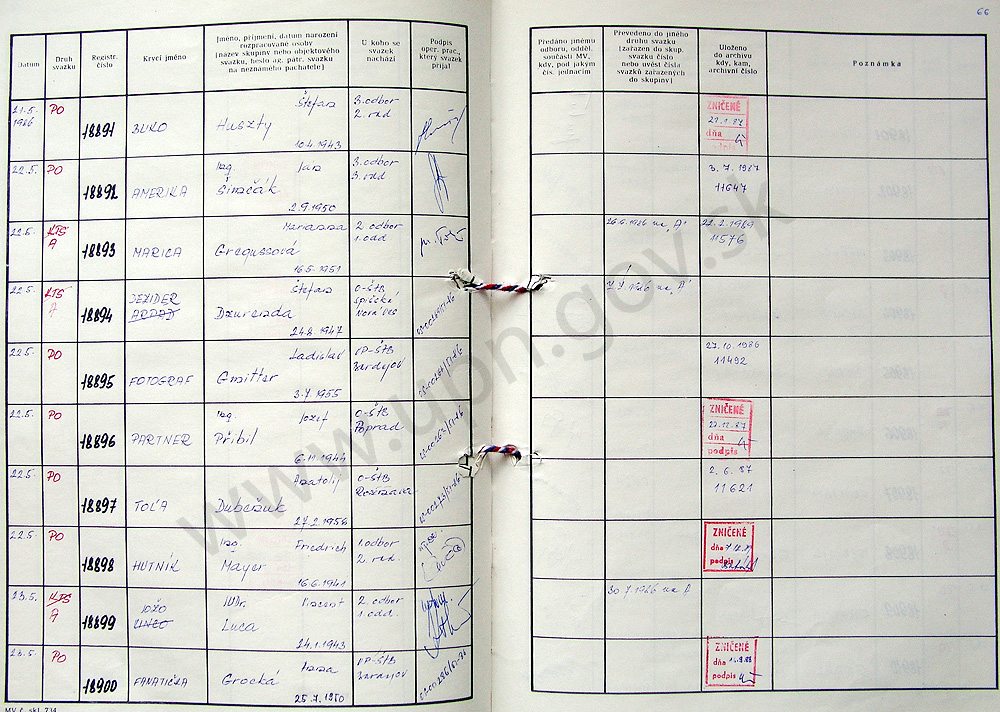 66
Datum
Druh
svazku
Registr.
číslo
Krycí jméno
Jméno, příjmení, datum narození
rozpracované osoby
[název skupiny nebo objektového
svazku, heslo ag. pátr. svazku
na neznámého pachatele]
U koho se
svazek
nachází
Podpis
oper. prac.,
který svazek
přijal
Předáno jinému
odboru, odděl.
součásti MV,
kdy, pod jakým
čís. jednacím
Převedeno do jiného
druhu svazku
[zařazen do skup.
svazku číslo
nebo uvést čísla
svazků zařazených
do skupiny]
Uloženo
do archivu
kdy, kam,
archivní číslo
Poznámka
21.5.
1986
PO
18891
BUKO
Štefan
Huszty
10.4.1943
3. odbor
2. odd
ZNIČENÉ
dňa
podpis
22.5.
PO
18892
AMERIKA
Ing. Ján
2.9.1950
3. odbor
3. odd
3. 7. 1987
11647
22.5.
KTS
A
18893
MARICA
Marianna
Gregussová
16.5.1951
2. odbor
1. odd
26.6.1986 na "A"
22.2.1989
11576
22.5.
KTS
A
18894
JEZIDER
ARPÁD
Štefan
Dzurenda
24.8.1947
O-ŠtB
Spišská
Nová Ves
22.5.
PO
18895
FOTOGRAF
Ladislav
Gmitter
3.7.1955
VP-ŠtB
Bardejov
27.10.1986
11492
22.5.
PO
18896
PARTNER
Ing. Jozef
Přibil
6.11.1944
O-ŠtB
Poprad
ZNIČENÉ
22.12.87
dňa
podpis
22.5.
PO
18897
TOĽA
Anatolij
Dubčžuk
27.2.1956
O-ŠtB
Rožňava
2. 6. 87
11621
22.5
PO
18898
HUTNÍK
Ing. Friedrich
Mayer
16.6.1941
1. odbor
2. odd.
ZNIČENÉ
dňa
podpis
23.5.
KTS
A
18899
JOŽO
JUDr. Vincent
Luca
24.1.1943
2. odbor
1. odd.
30.7.1986 na A
23.5.
PO
18900
FANATIČKA
Anna
Grocká
25.7.1950
VP-ŠtB
Bardejov
ZNIČENÉ
dňa
podpis
www.upn.gov.sk
MV č. skl. 734